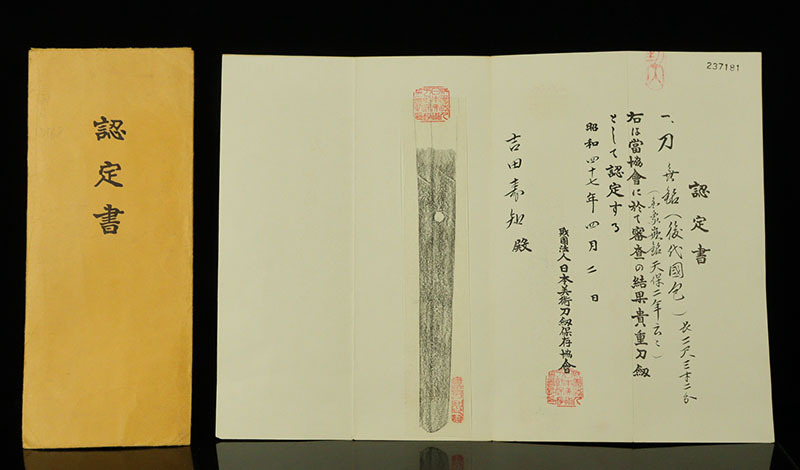 認定書
237181
認定書
一、刀 無銘(後代國包)長二尺三寸二分
天保二年云々)
右は當協會に於て審査の結果貴重刀劔
として認定する
昭和四十七年四月二日
財團法人日本美術刀劔保存協會
吉田 殿